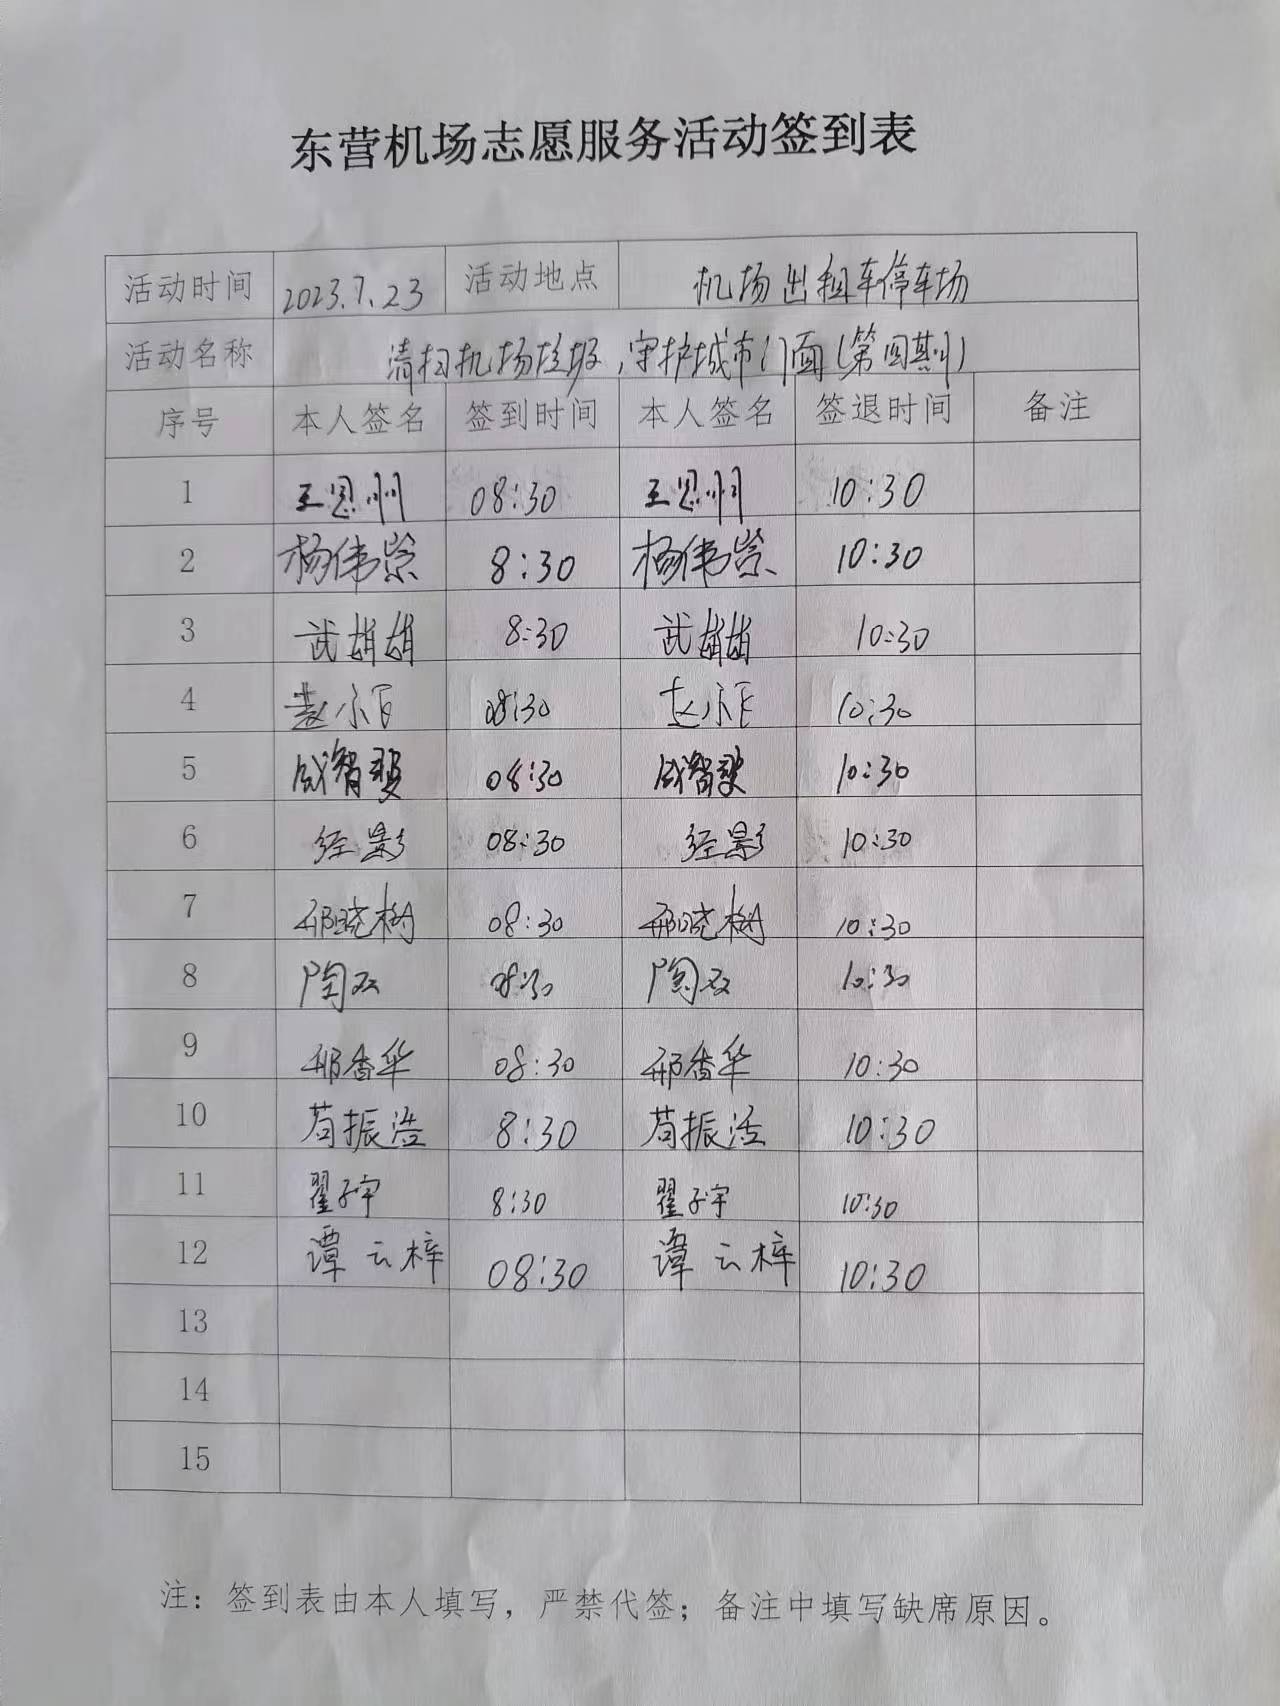 东营机场志愿服务活动签到表
活动时间 2023.7.23 活动地点 机场出租车停车场
活动名称 清扫机场垃圾,守护城市门面(第四期)
序号 本人签名 签到时间 本人签名 签退时间 备注
1 王恩州 08:30 王恩州 10:30
2 杨伟崇 8:30 杨伟崇 10:30
3 武雄雄 8:30 武雄雄 10:30
4 08:30 10:30
5 成智斐 08:30 成智斐 10:30
6 经影 08:30 经影 10:30
7 邢晓树 08:30 邢晓树 10:30
8 08:30 10:30
9 邢香华 08:30 邢香华 10:30
10 苟振浩 8:30 苟振浩 10:30
11 翟子宇 8:30 翟子宇 10:30
12 谭云梓 08:30 谭云梓 10:30
13
14
15
注：签到表由本人填写，严禁代签；备注中填写缺席原因。